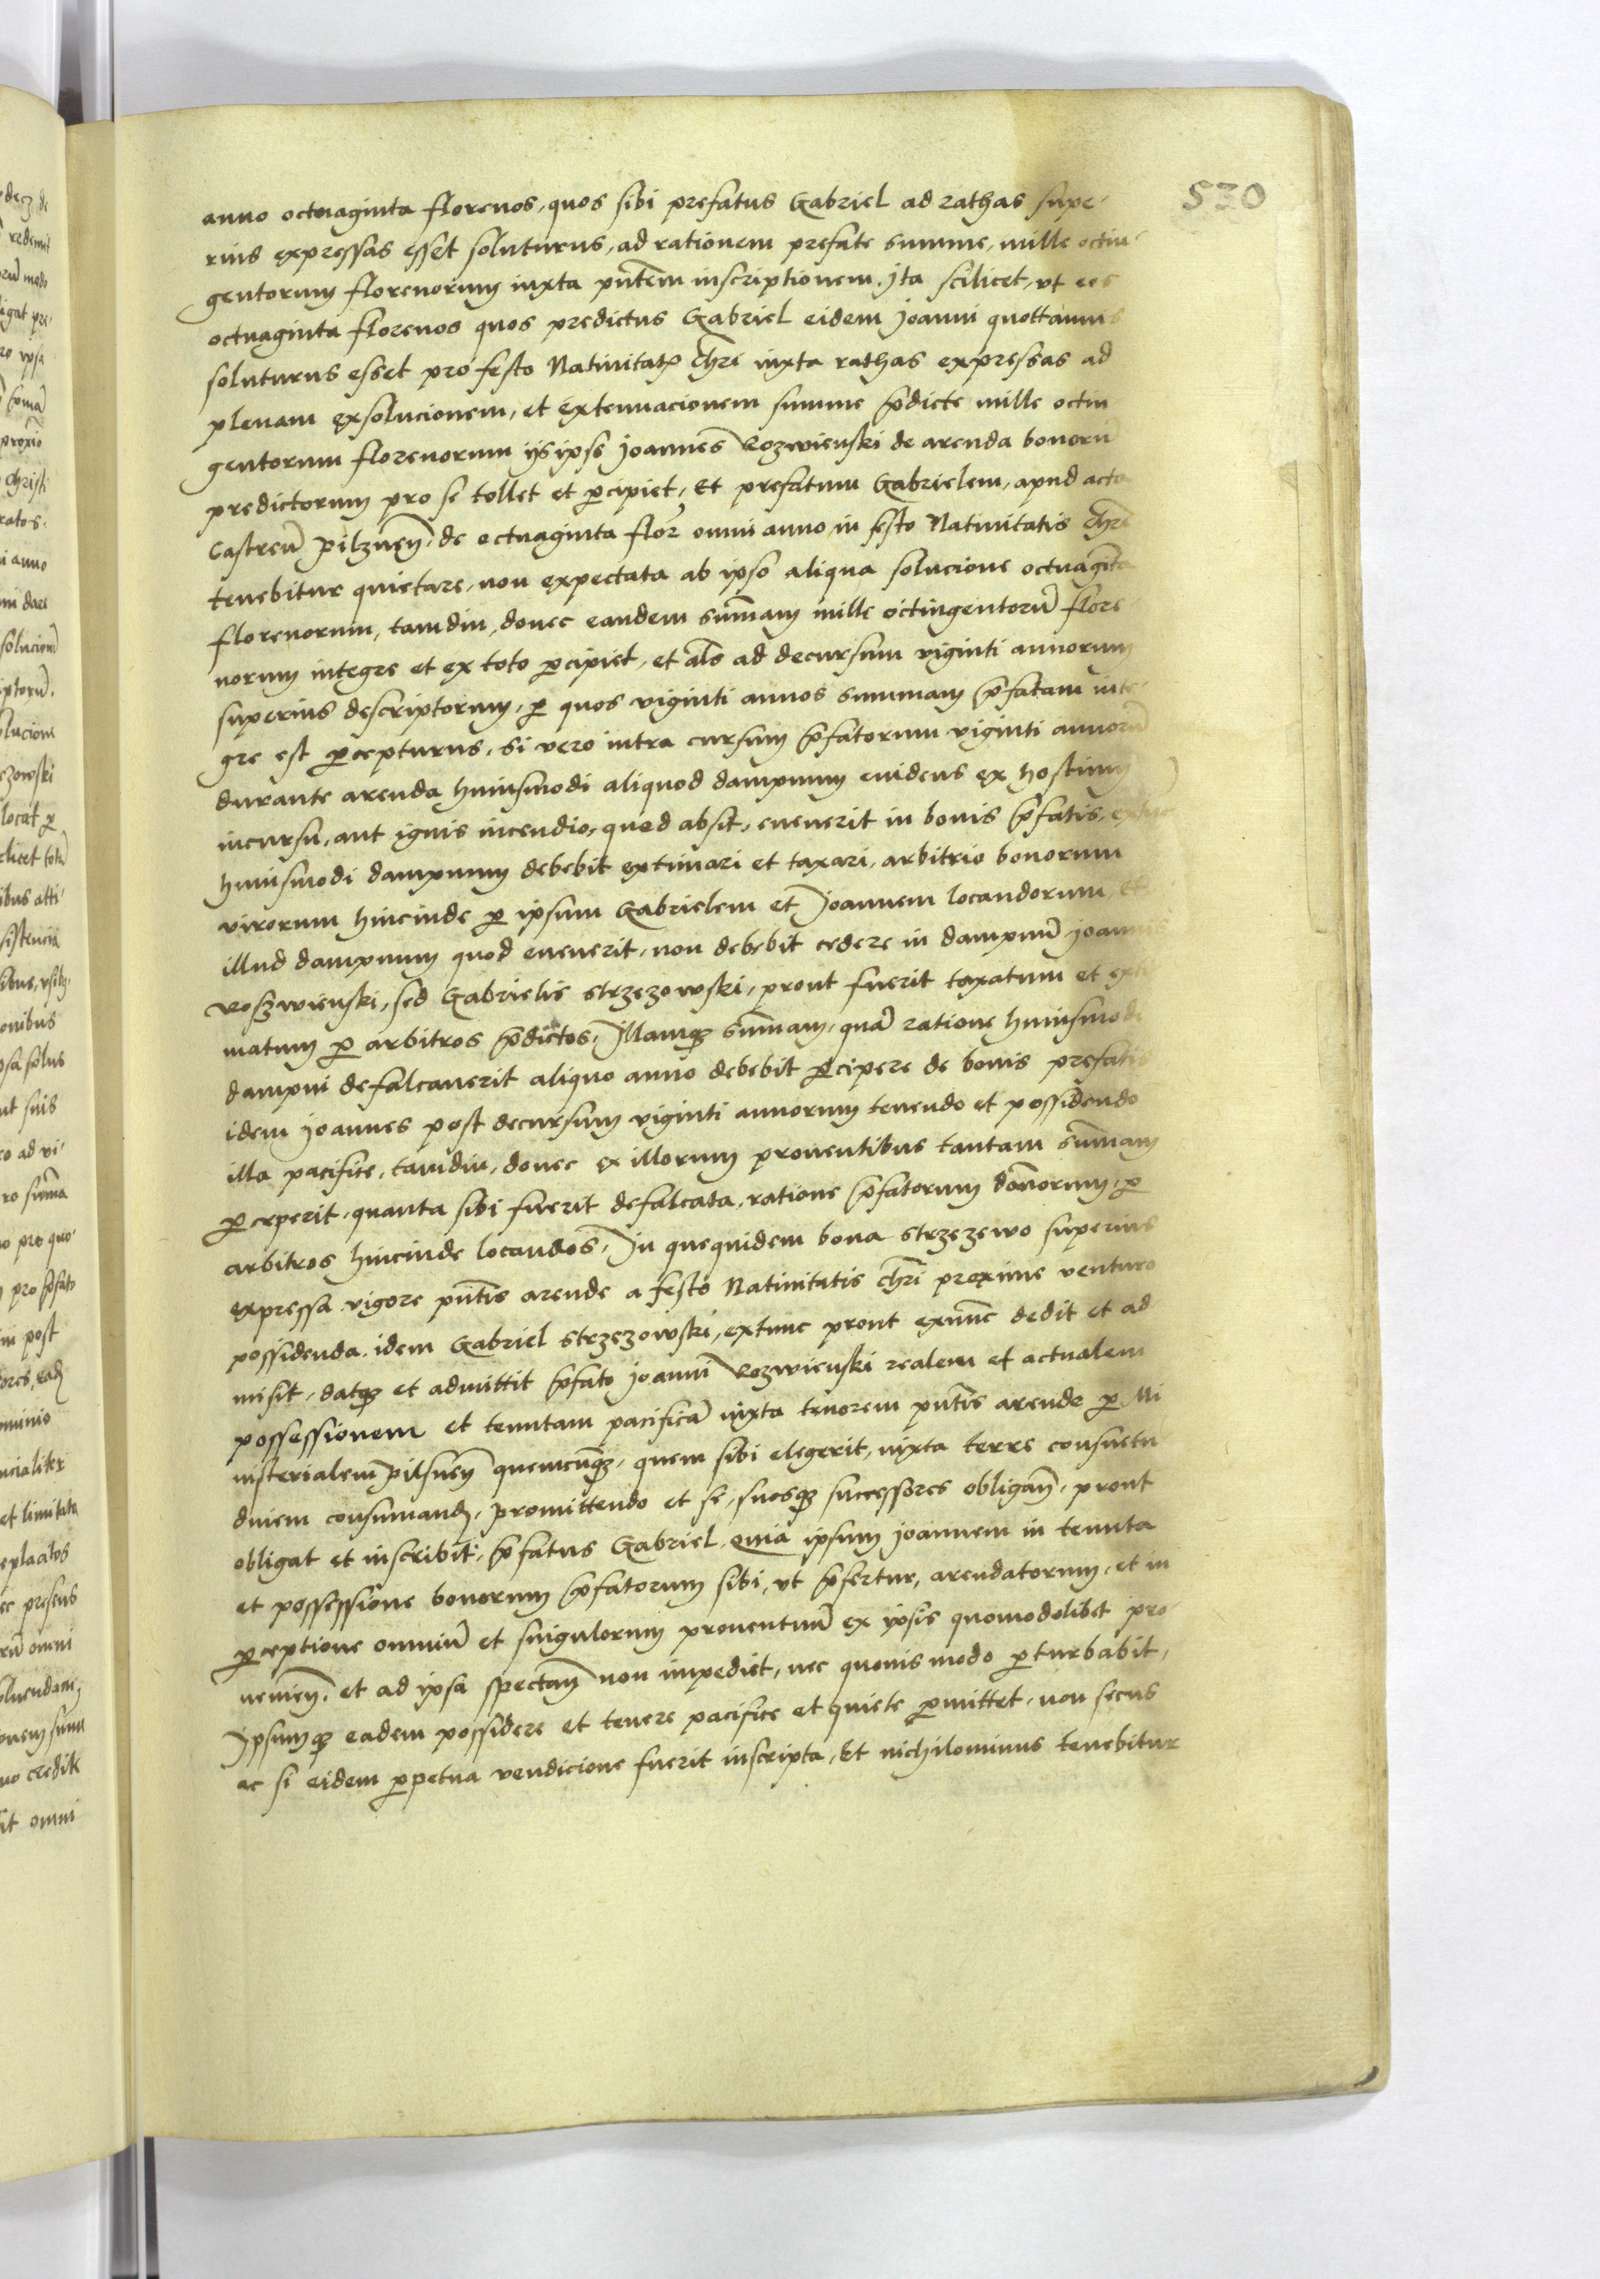 530
anno octuaginta florenos, quos sibi prefatus Gabriel ad rathas supe-
rius expressas esset soluturus, ad rationem prefate summe, mille octin-
gentorum florenorum iuxta pñtem inscriptionem. Ita scilicet, vt eos
octuaginta florenos quos predictus Gabriel eidem Joanni quottannis
soluturus esset pro festo Natiuitatꝭ chri iuxta rathas expressas ad
plenam exsolucionem, et extenuacionem summe p̃dicte mille octin
gentorum florenorum ijs ipse Joannes Rozwienski de arenda bonorũ
predictorum pro se tollet et ꝑcipiet, Et prefatum Gabrielem, apud acta
Castreñ Pilzneñ, de octuaginta flor omni anno in festo Natiuitatis chri
tenebitur quietare, non expectata ab ipso aliqua solucione octuaginta
florenorum, tamdiu, donec eandem sum̃am mille octingentorũ flore-
norum integre et ex toto ꝑcipiet, et als̃ ad decursum viginti annorum
superius descriptorum, ꝑ quos viginti annos summam p̃fatam inte-
gre est ꝑcepturus, si vero intra cursum p̃fatorum viginti annorũ
durante arenda huiusmodi aliquod dampnum euidens ex hostium
incursu, aut ignis incendio, quod absit, euenerit in bonis p̃fatis,
huiusmodi dampnum debebit extimari et taxari, arbitrio bonorum
virorum hincinde ꝑ ipsum Gabrielem et Joannem locandorum, Et
illud dampnum quod euenerit, non debebit cedere in dampnũ Joannis
Roszwienski, sed Gabrielis Strzezowski, prout fuerit taxatum et exti
matum ꝑ arbitros p̃dictos, Illamqꝫ sum̃am, quã ratione huiusmodi
dampni defalcauerit aliquo anno debebit ꝑcipere de bonis prefatis
idem Joannes post decursum viginti annorum tenendo et possidendo
illa pacifice, tamdiu, donec ex illorum prouentibus tantam sum̃am
ꝑceperit, quanta sibi fuerit defalcata, ratione p̃fatorum dãnorum, ꝑ
arbitros hincinde locandos, In quequidem bona Strzezewo superius
expressa vigore pñtis arende a festo Natiuitatis chri proxime venturo
possidenda, idem Gabriel Strzezowski, extunc prout exnunc dedit et ad
misit, datqꝫ et admittit p̃fato Joanni Rozwienski realem et actualem
possessionem et tenutam pacificã iuxta tenorem pñtis arende ꝑ Mi
nisterialem Pilsneñ quemcũqꝫ, quem sibi elegerit, iuxta terre consuetu
dinem consumanđ, promittendo et se, suosqꝫ successores obligañ, prout
obligat et inscribit, p̃fatus Gabriel, quia ipsum Joannem in tenuta
et possessione bonorum p̃fatorum sibi, vt p̃fertur, arendatorum, et in
ꝑceptione omniũ et singulorum prouentuũ ex ipsis quomodolibet pro
uenieñ, et ad ipsa spectañ non impediet, nec quouis modo ꝑturbabit,
Ipsumqꝫ eadem possidere et tenere pacifice et quiete ꝑmittet, non secus
ac si eidem ꝑpetua vendicione fuerit inscripta, Et nichilominus tenebitur